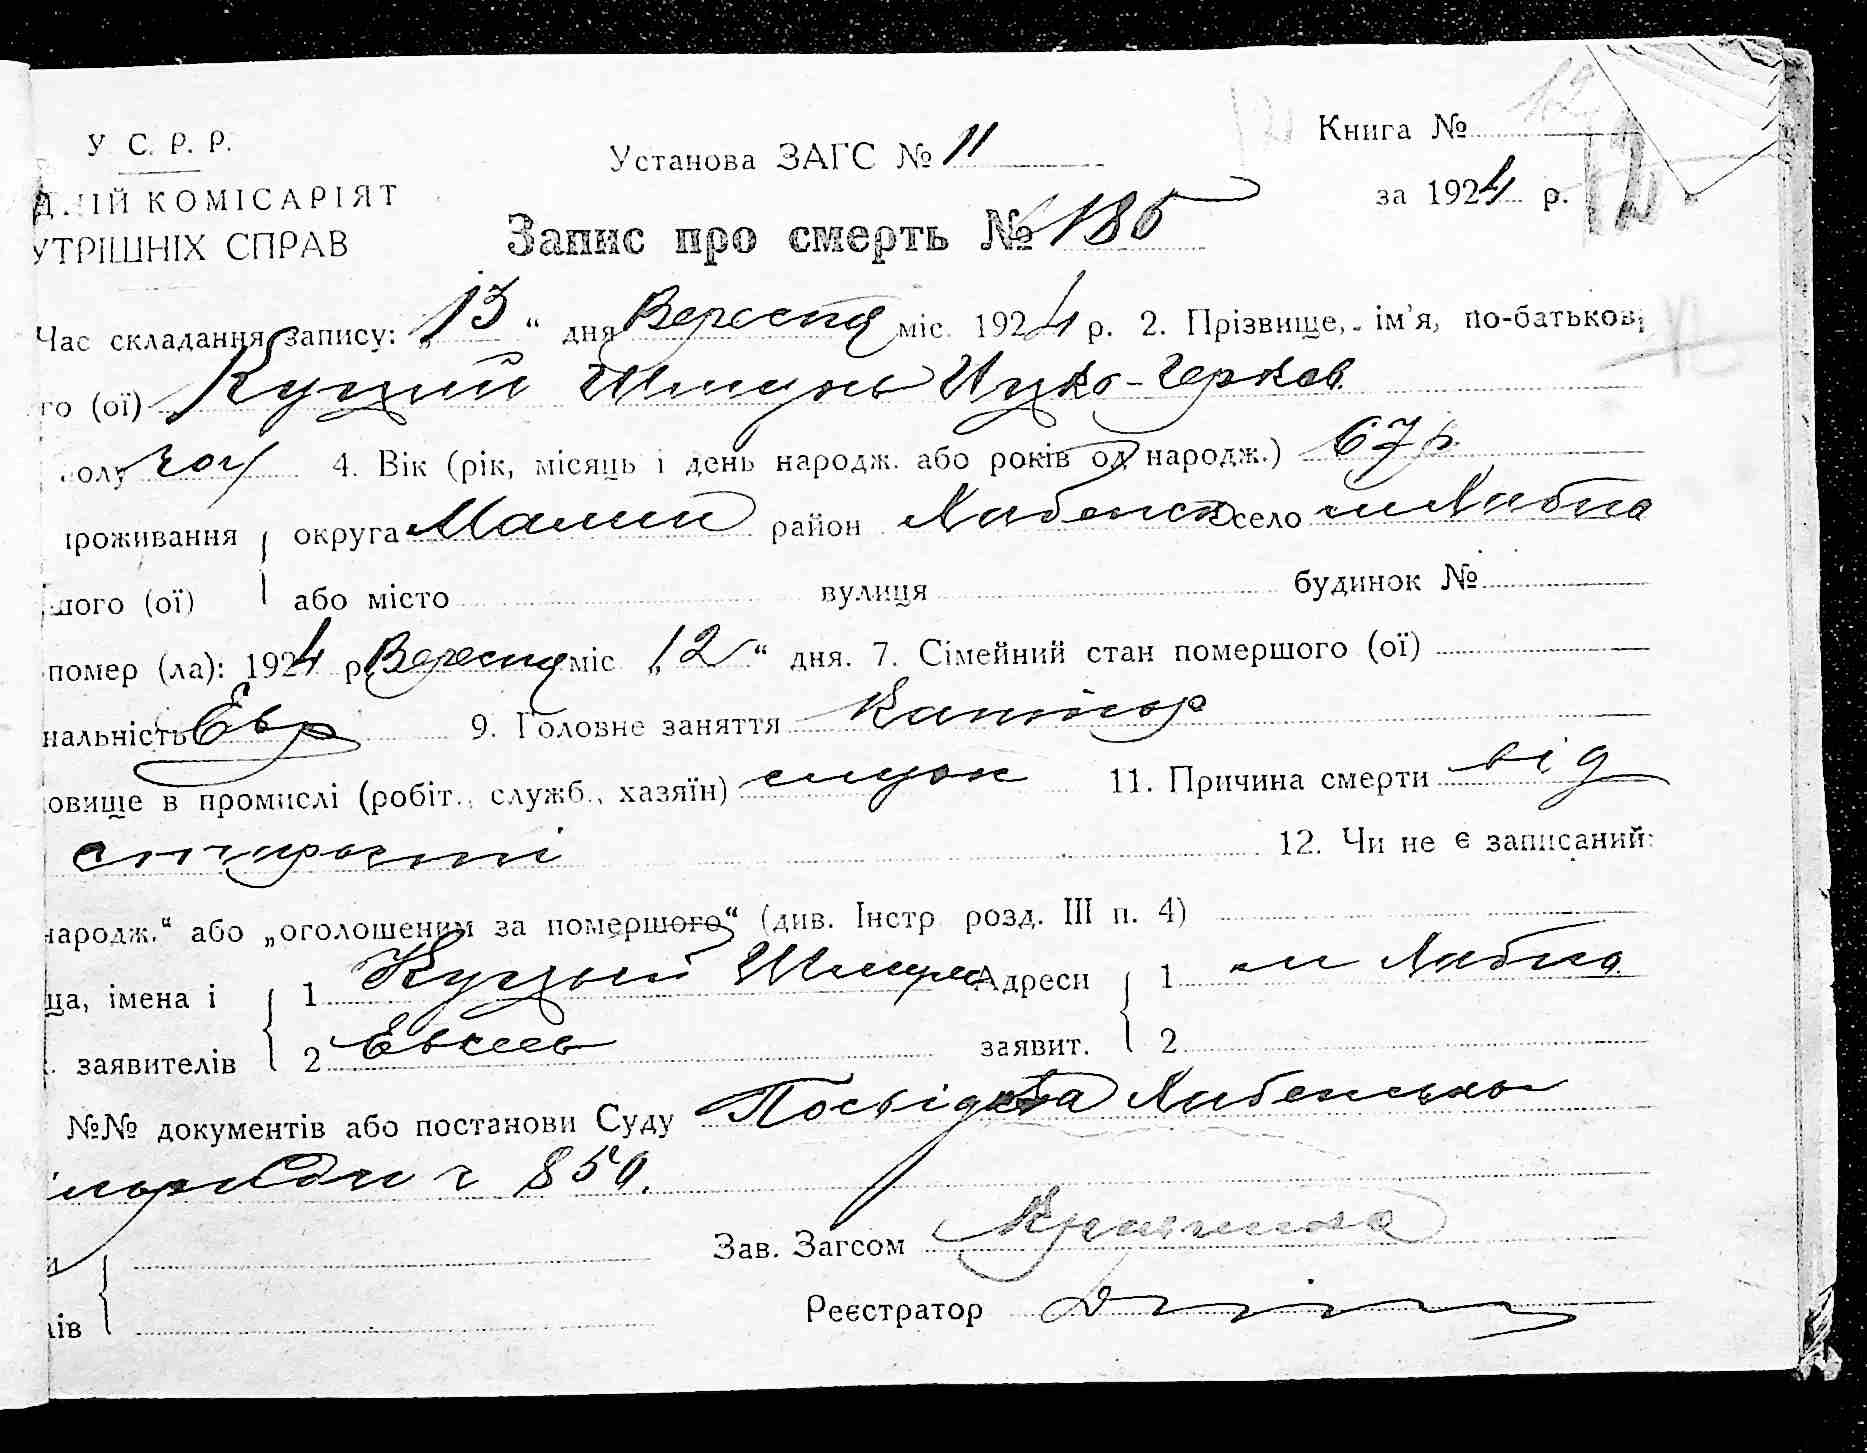 У. С. Р. Р.
Установа ЗАГС № 11
Книга № 12
ДНІЙ КОМІСАРІЯТ
за 1924 р.
12
УТРІШНІХ СПРАВ
Запис про смерть № 186
Час складання запису: „13“ дня Вересня міс. 1924 р. 2. Прізвище, ім’я, по-батькові
го (ої) Куцый Шмуль Ицко-Герков
полу чол 4. Вік (рік, місяць і день народж. або років од народж.) 67 р.
проживання округа Малин район Хабенск село м Хабно
шого (ої) або місто вулиця будинок №
помер (ла): 1924 р. Вересня міс „12“ дня. 7. Сімейний стан помершого (ої)
нальність Евр 9. Головне заняття Кантор
овище в промислі (робіт., служб., хазяїн) служ 11. Причина смерти від
старости 12. Чи не є записаний:
народж.“ або „оголошеним за помершого“ (див. Інстр розд. III п. 4)
ща, імена і 1 Куцый Адреси 1 м Хабно
заявителів 2 Евсей заявит. 2
№№ документів або постанови Суду Посвідка Хабенської
ч 850.
Зав. Загсом
ів Реєстратор